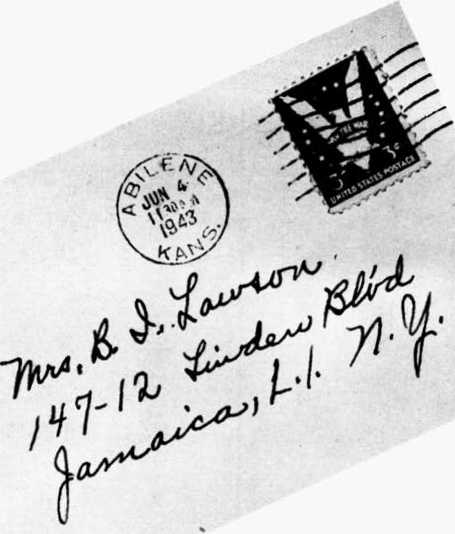 WIN THE WAR
3¢
UNITED STATES POSTAGE
ABILENE
JUN 4
11 30 AM
1943
KANS.
Mrs. B. I. Lawson
147-12 Linden Blvd
Jamaica, L.I. N.Y.